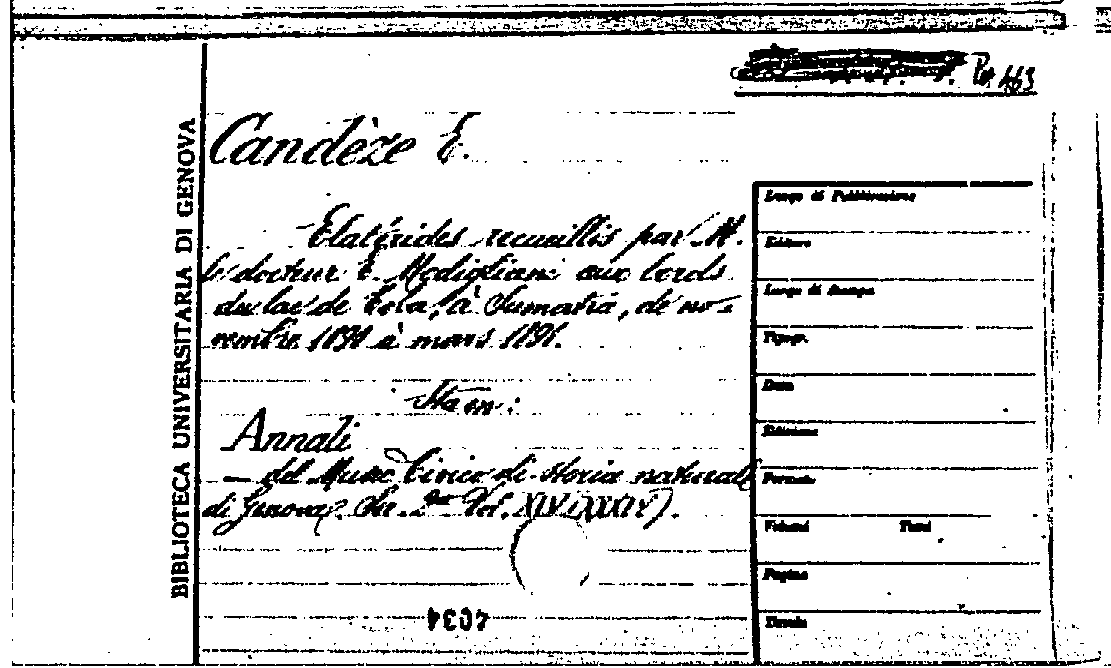 Per. 463
BIBLIOTECA UNIVERSITARIA DI GENOVA
Candèze E.
Elatérides recueillis par M.
le docteur E. Modigliani aux bords
du lac de Toba, à Sumatra, de no-
vembre 1890 à mars 1891.
Sta in:
Annali
— del Museo Civico di storia naturale
di Genova. Ser. 2ᵃ Vol. XIV (XXXIV).
4034
Luogo di Pubblicazione
Editore
Luogo di Stampa
Tipogr.
Data
Edizione
Formato
Volumi Tomi
Pagine
Tavole